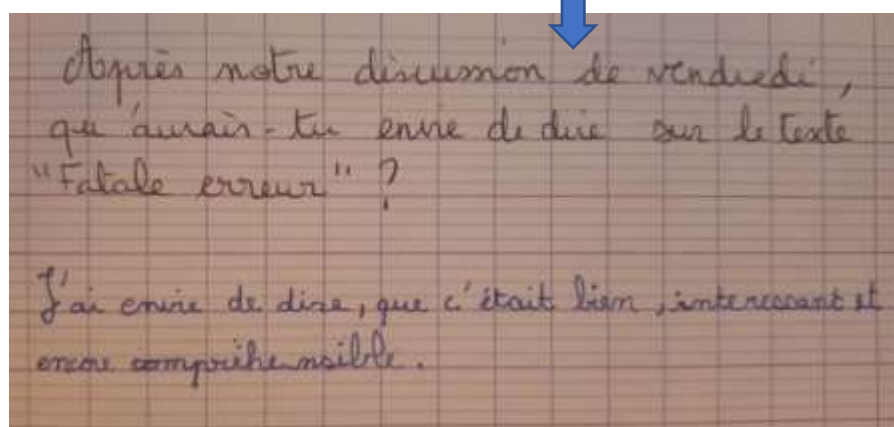 Après notre discussion de vendredi,
qu'aurais-tu envie de dire sur le texte
"Fatale erreur" ?
J'ai envie de dire, que c'était bien, interessant et
encore compréhensible.